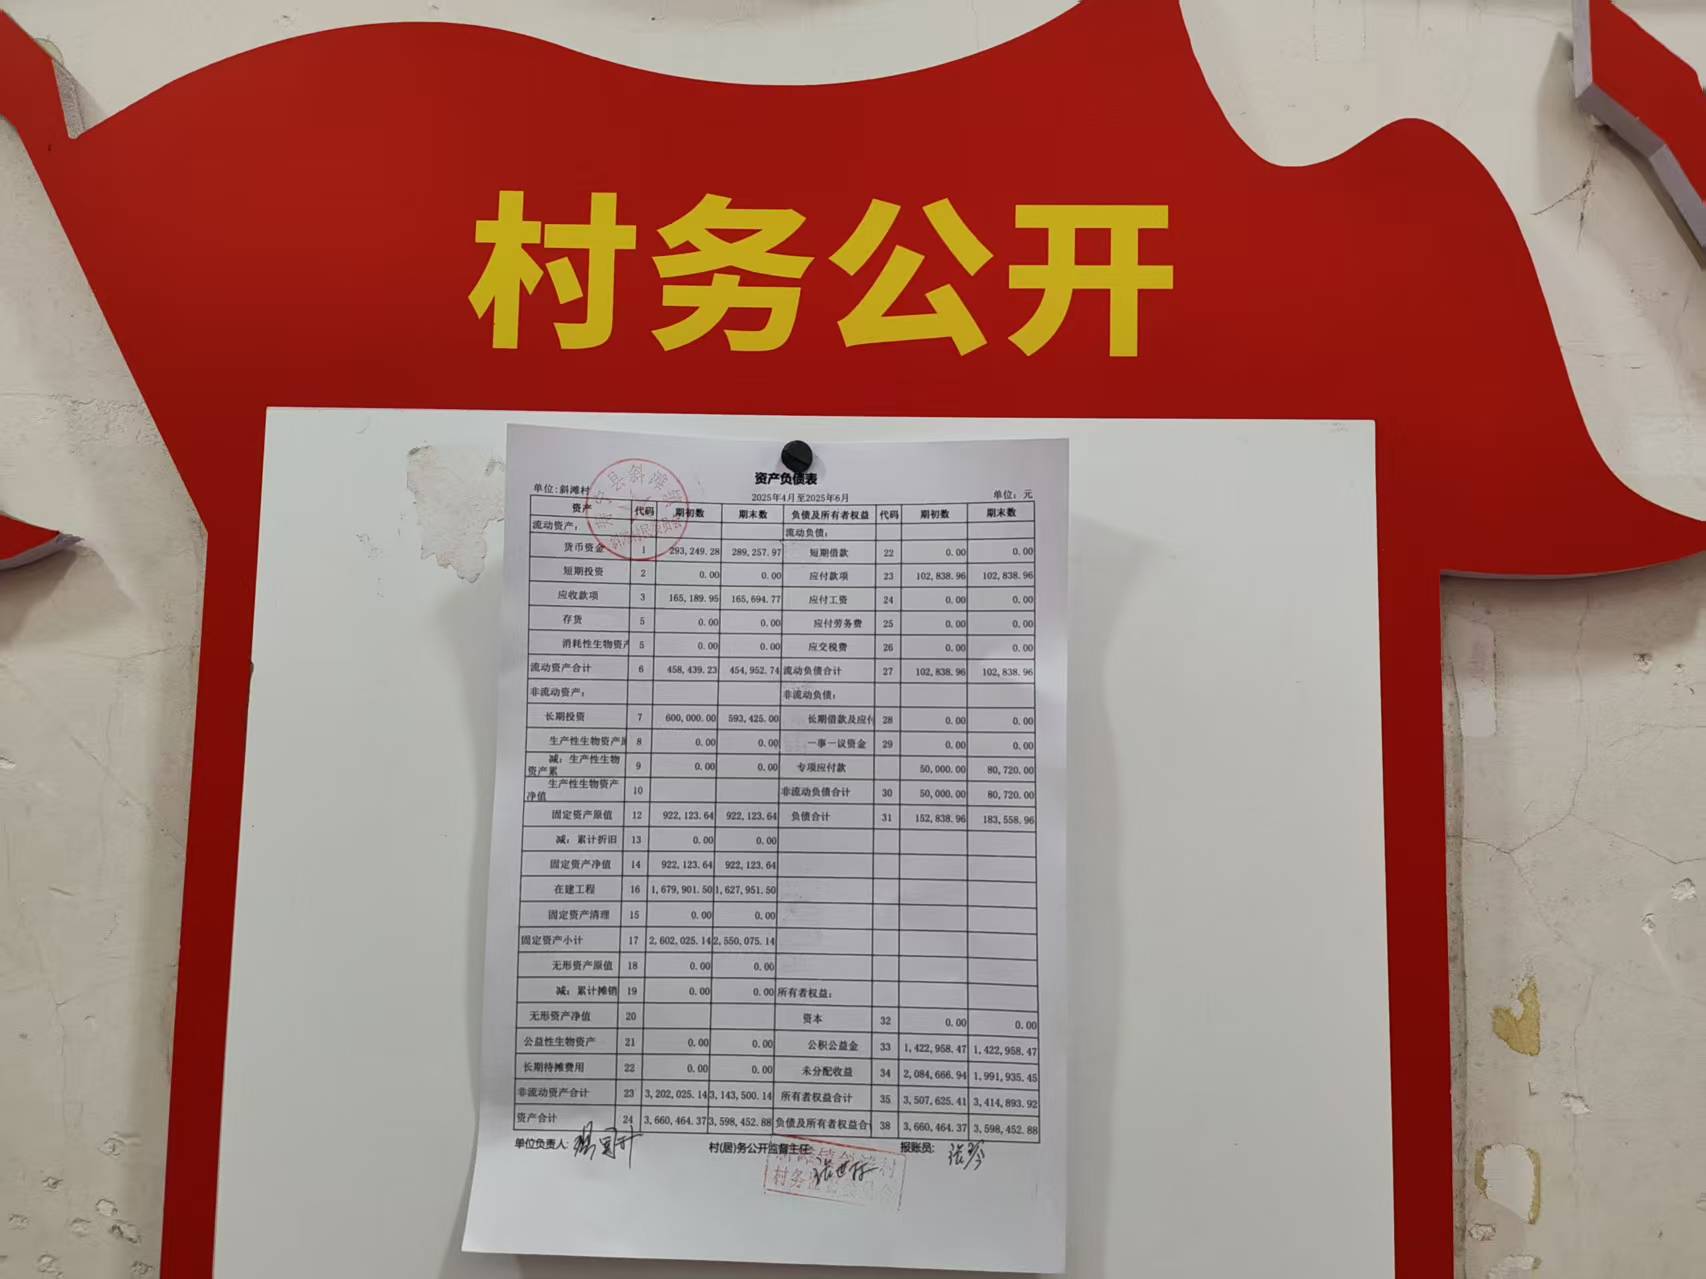 村务公开
资产负债表
单位:斜滩村 2025年4月至2025年6月 单位：元
资产 代码 期初数 期末数 负债及所有者权益 代码 期初数 期末数
流动资产： 流动负债：
货币资金 1 293,249.28 289,257.97 短期借款 22 0.00 0.00
短期投资 2 0.00 0.00 应付款项 23 102,838.96 102,838.96
应收款项 3 165,189.95 165,694.77 应付工资 24 0.00 0.00
存货 5 0.00 0.00 应付劳务费 25 0.00 0.00
消耗性生物资产 5 0.00 0.00 应交税费 26 0.00 0.00
流动资产合计 6 458,439.23 454,952.74 流动负债合计 27 102,838.96 102,838.96
非流动资产： 非流动负债：
长期投资 7 600,000.00 593,425.00 长期借款及应付 28 0.00 0.00
生产性生物资产 8 0.00 0.00 一事一议资金 29 0.00 0.00
减：生产性生物资产累 9 0.00 0.00 专项应付款 50,000.00 80,720.00
生产性生物资产净值 10 非流动负债合计 30 50,000.00 80,720.00
固定资产原值 12 922,123.64 922,123.64 负债合计 31 152,838.96 183,558.96
减：累计折旧 13 0.00 0.00
固定资产净值 14 922,123.64 922,123.64
在建工程 16 1,679,901.50 1,627,951.50
固定资产清理 15 0.00 0.00
固定资产小计 17 2,602,025.14 2,550,075.14
无形资产原值 18 0.00 0.00
减：累计摊销 19 0.00 0.00 所有者权益：
无形资产净值 20 资本 32 0.00 0.00
公益性生物资产 21 0.00 0.00 公积公益金 33 1,422,958.47 1,422,958.47
长期待摊费用 22 0.00 0.00 未分配收益 34 2,084,666.94 1,991,935.45
非流动资产合计 23 3,202,025.14 3,143,500.14 所有者权益合计 35 3,507,625.41 3,414,893.92
资产合计 24 3,660,464.37 3,598,452.88 负债及所有者权益合 38 3,660,464.37 3,598,452.88
单位负责人: 村(居)务公开监督主任: 报账员: